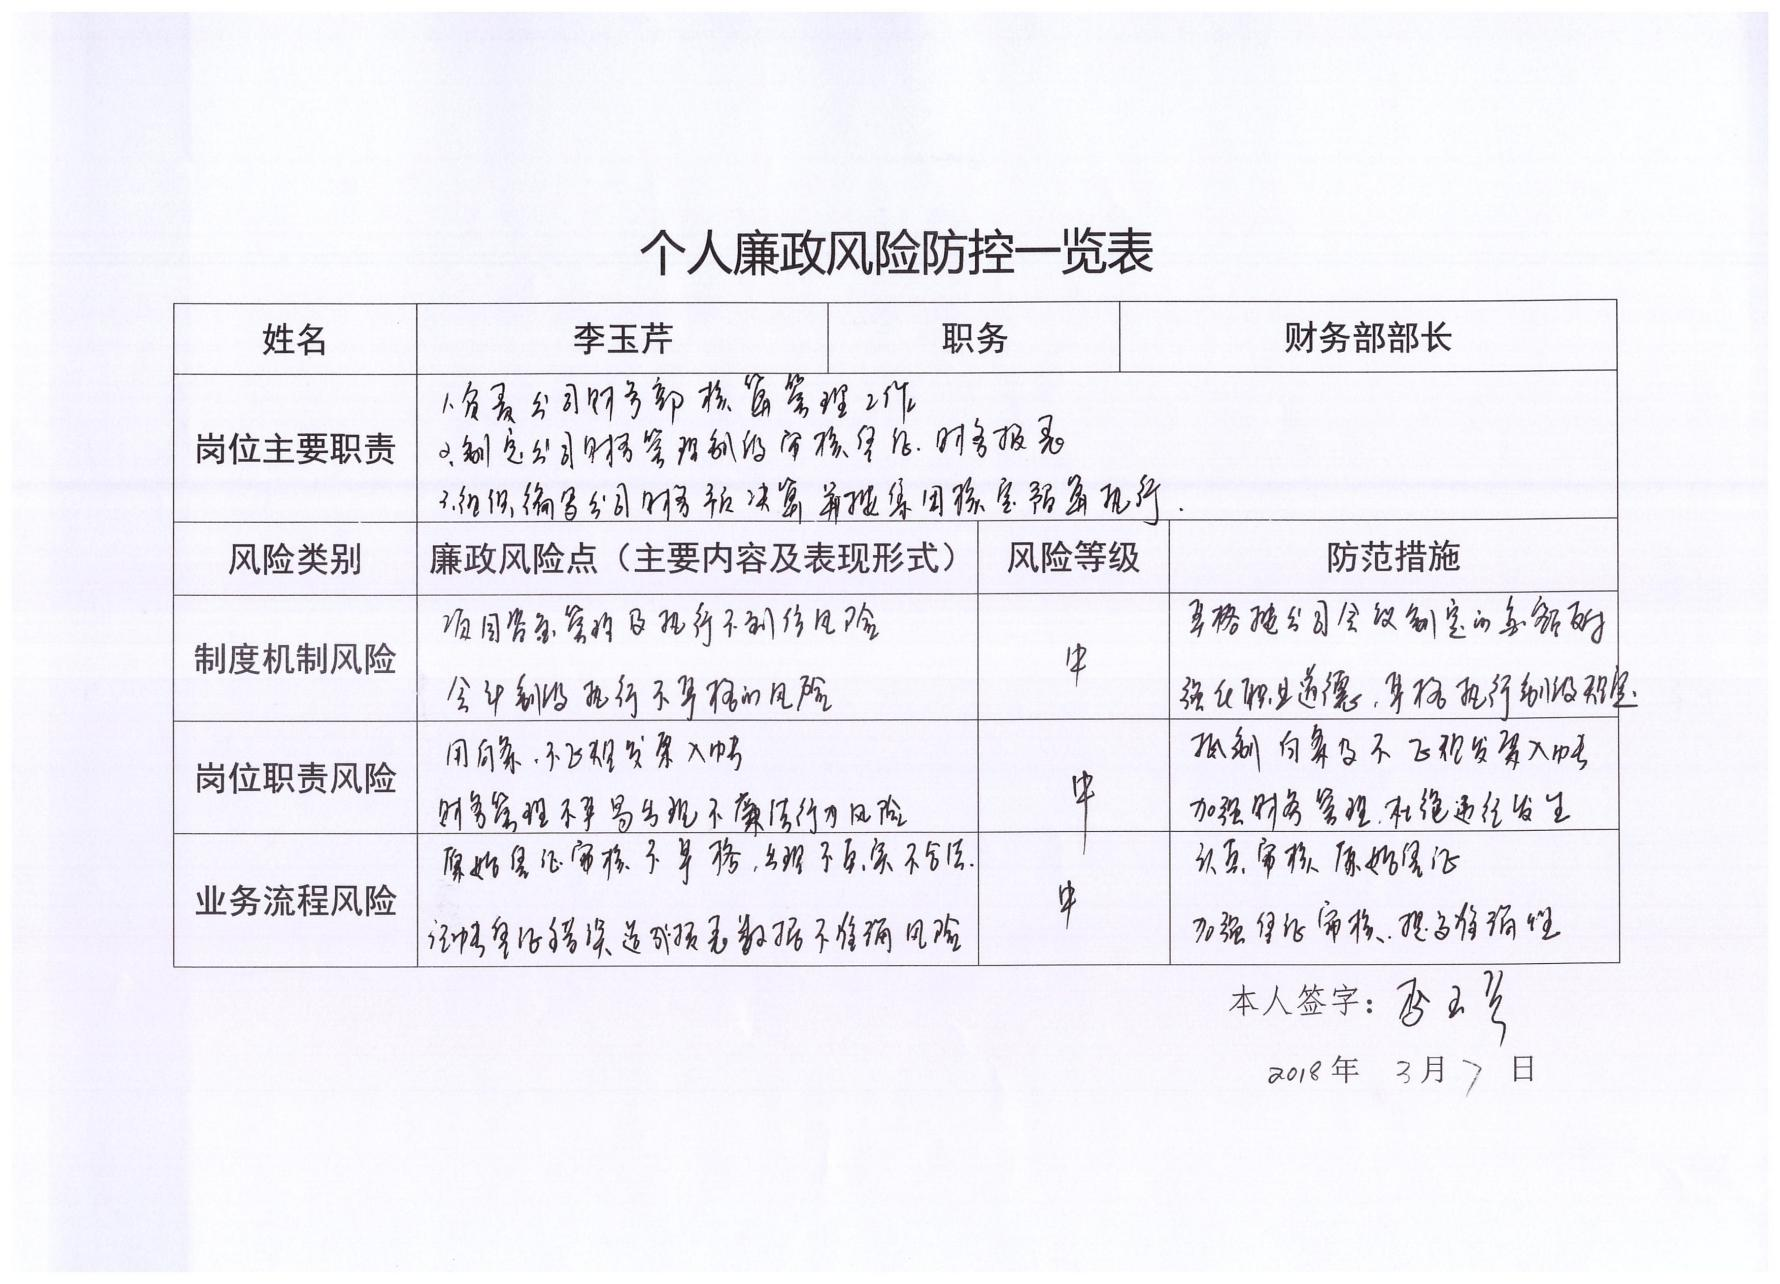 个人廉政风险防控一览表
姓名 李玉芹 职务 财务部部长
岗位主要职责
1、负责公司财务部核算管理工作
2、制定公司财务管理制度审核凭证、财务报表
3、组织编写公司财务预决算并按集团核定预算执行.
风险类别 廉政风险点（主要内容及表现形式） 风险等级 防范措施
制度机制风险
项目资金管理及执行不到位风险
会计制度执行不严格的风险
中
严格按公司会议制定的
强化职业道德、严格执行制度规定.
岗位职责风险
用白条、不正规发票入帐
财务管理不严易出现不廉洁行为风险
中
抵制白条及不正规发票入帐
加强财务管理、杜绝违纪发生
业务流程风险
原始凭证审核不严格、出现不真实不合法.
记帐凭证错误造成报表数据不准确风险
中
认真审核原始凭证
加强凭证审核、提高准确性
本人签字：李玉芹
2018年 3月 7 日